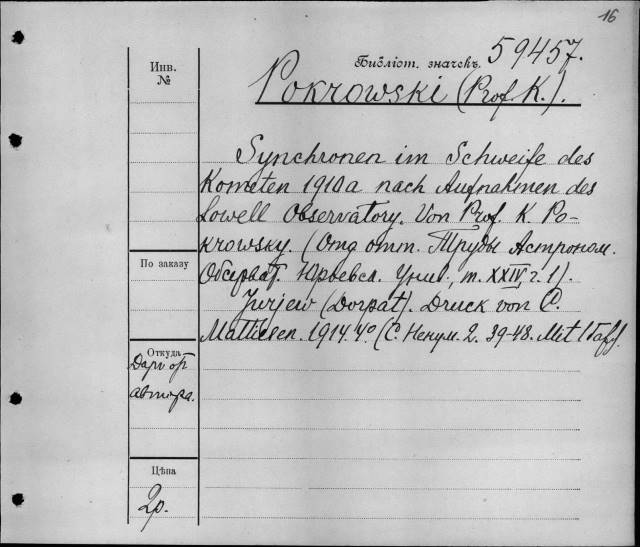 16
Инв.
№
Библіот. значекъ. 59457.
Pokrowski (Prof. K.).
Synchronen im Schweife des
Kometen 1910a nach Aufnahmen des
Lowell Observatory. Von Prof. K. Po-
krowsky. (Отд. отт. Труды Астроном.
Обсерват. Юрьевск. Унив., т. XXIV, г. 1).
Jurjew (Dorpat). Druck von C.
Mattiesen. 1914. 4° (С. Ненум. 2. 39-48. Mit 1 Taf.)
По заказу
Откуда
Даръ отъ
автора.
Цѣна
2р.